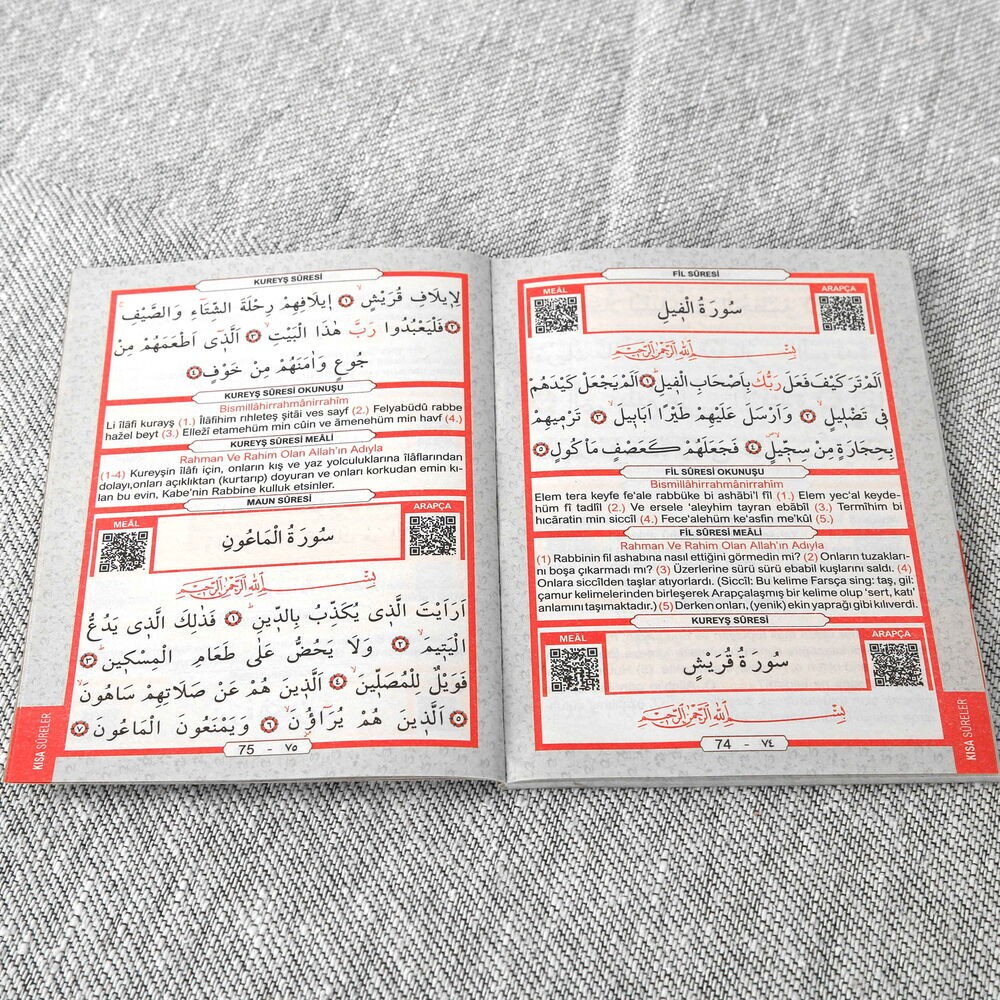 FİL SÛRESİ
MEÂL
ARAPÇA
سُورَةُ الْفٖيلِ
بِسْمِ اللّٰهِ الرَّحْمٰنِ الرَّحٖيمِ
اَلَمْ تَرَ كَيْفَ فَعَلَ رَبُّكَ بِاَصْحَابِ الْفٖيلِ ﴿١﴾ اَلَمْ يَجْعَلْ كَيْدَهُمْ
فٖى تَضْلٖيلٍ ﴿٢﴾ وَاَرْسَلَ عَلَيْهِمْ طَيْرًا اَبَابٖيلَ ﴿٣﴾ تَرْمٖيهِمْ
بِحِجَارَةٍ مِنْ سِجّٖيلٍ ﴿٤﴾ فَجَعَلَهُمْ كَعَصْفٍ مَأْكُولٍ ﴿٥﴾
FİL SÛRESİ OKUNUŞU
Bismillâhirrahmânirrahîm
Elem tera keyfe fe'ale rabbüke bi ashâbi'l fîl (1.) Elem yec'al keyde-
hüm fî tadlîl (2.) Ve ersele 'aleyhim tayran ebâbîl (3.) Termîhim bi
hıcâratin min siccîl (4.) Fece'alehüm ke'asfin me'kûl (5.)
FİL SÛRESİ MEÂLİ
Rahman Ve Rahim Olan Allah'ın Adıyla
(1) Rabbinin fil ashabına nasıl ettiğini görmedin mi? (2) Onların tuzakları-
nı boşa çıkarmadı mı? (3) Üzerlerine sürü sürü ebabil kuşlarını saldı. (4)
Onlara siccîlden taşlar atıyorlardı. (Siccîl: Bu kelime Farsça sing: taş, gil:
çamur kelimelerinden birleşerek Arapçalaşmış bir kelime olup 'sert, katı'
anlamını taşımaktadır.) (5) Derken onları, (yenik) ekin yaprağı gibi kılıverdi.
KUREYŞ SÛRESİ
MEÂL
ARAPÇA
سُورَةُ قُرَيْشٍ
بِسْمِ اللّٰهِ الرَّحْمٰنِ الرَّحٖيمِ
74 - ٧٤
KISA SÛRELER
KUREYŞ SÛRESİ
لِاٖيلَافِ قُرَيْشٍ ﴿١﴾ اٖيلَافِهِمْ رِحْلَةَ الشِّتَٓاءِ وَالصَّيْفِ
﴿٢﴾ فَلْيَعْبُدُوا رَبَّ هٰذَا الْبَيْتِ ﴿٣﴾ اَلَّذٖٓى اَطْعَمَهُمْ مِنْ
جُوعٍ وَاٰمَنَهُمْ مِنْ خَوْفٍ ﴿٤﴾
KUREYŞ SÛRESİ OKUNUŞU
Bismillâhirrahmânirrahîm
Li îlâfi kurayş (1.) Îlâfihim rıhleteş şitâi ves sayf (2.) Felyabüdû rabbe
hažel beyt (3.) Ellezî etamehüm min cûin ve âmenehüm min havf (4.)
KUREYŞ SÛRESİ MEÂLİ
Rahman Ve Rahim Olan Allah'ın Adıyla
(1-4) Kureyşin îlâfı için, onların kış ve yaz yolculuklarına îlâflarından
dolayı,onları açıklıktan (kurtarıp) doyuran ve onları korkudan emin kı-
lan bu evin, Kabe'nin Rabbine kulluk etsinler.
MAUN SÛRESİ
MEÂL
ARAPÇA
سُورَةُ الْمَاعُونِ
بِسْمِ اللّٰهِ الرَّحْمٰنِ الرَّحٖيمِ
اَرَاَيْتَ الَّذٖى يُكَذِّبُ بِالدّٖينِ ﴿١﴾ فَذٰلِكَ الَّذٖى يَدُعُّ
الْيَتٖيمَ ﴿٢﴾ وَلَا يَحُضُّ عَلٰى طَعَامِ الْمِسْكٖينِ ﴿٣﴾
فَوَيْلٌ لِلْمُصَلّٖينَ ﴿٤﴾ اَلَّذٖينَ هُمْ عَنْ صَلَاتِهِمْ سَاهُونَ
﴿٥﴾ اَلَّذٖينَ هُمْ يُرَٓاؤُنَ ﴿٦﴾ وَيَمْنَعُونَ الْمَاعُونَ ﴿٧﴾
75 - ٧٥
KISA SÛRELER